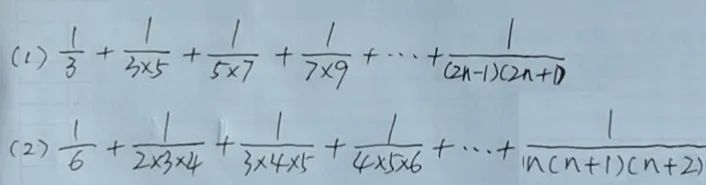 (1) 1/3 + 1/(3×5) + 1/(5×7) + 1/(7×9) + ⋯ + 1/((2n-1)(2n+1))
(2) 1/6 + 1/(2×3×4) + 1/(3×4×5) + 1/(4×5×6) + ⋯ + 1/(n(n+1)(n+2))